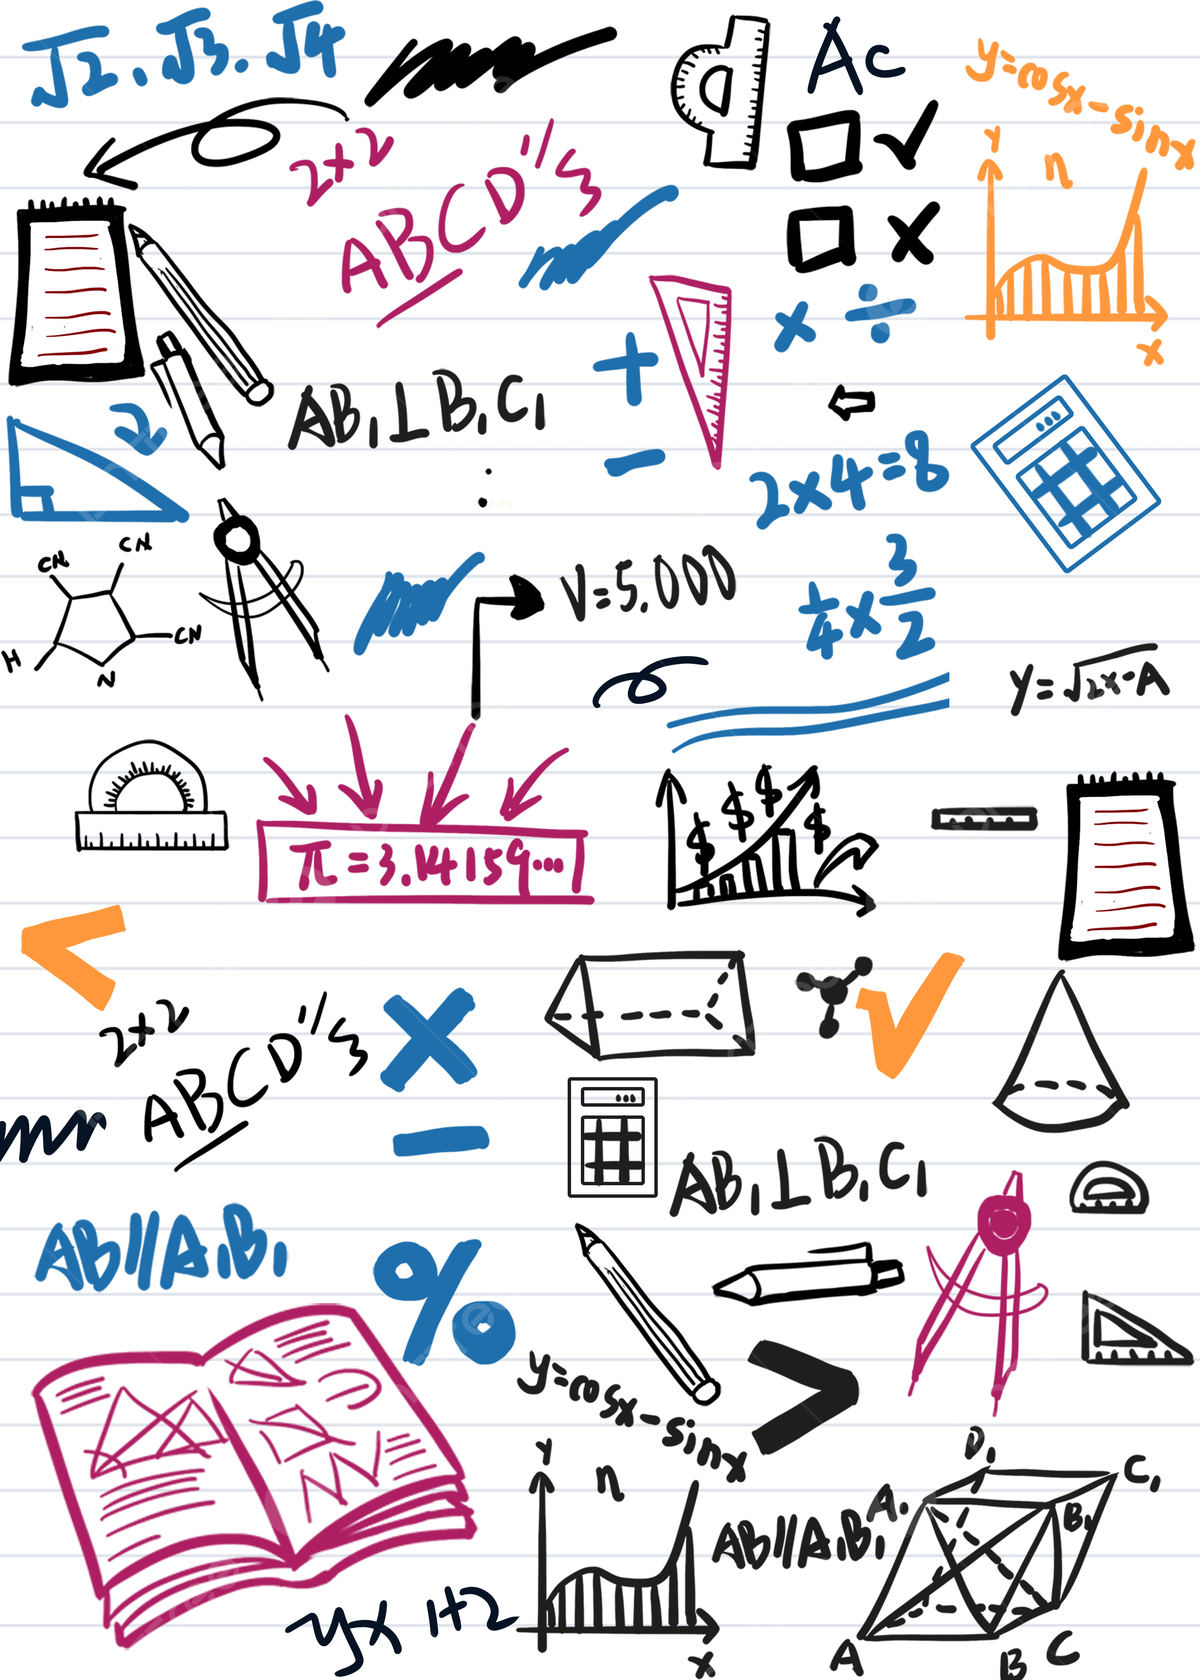 √2, √3, √4
Ac
y=cosx-sinx
2×2
ABCD''
Y
n
x
× ÷
+
AB₁⊥B₁C₁
2
-
2×4=8
CN
CN
CN
H
N
V=5.000
1/4×3/2
y=√2x-A
π=3.14159...
$ $ $ $
<
2×2
ABCD''
×
-
AB₁⊥B₁C₁
AB//A₁B₁
%
>
y=cosx-sinx
Y
n
x
AB//A₁B₁
D₁
C₁
A₁
B₁
A
B
C
yx 1+2